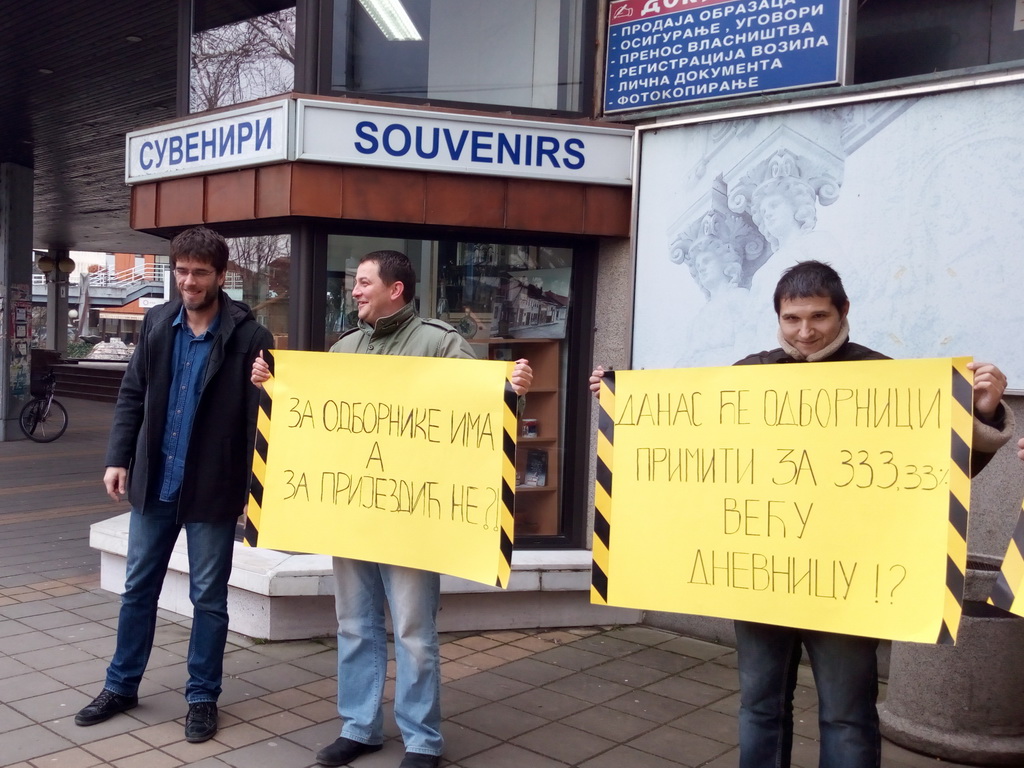 - ПРОДАЈА ОБРАЗАЦА
- ОСИГУРАЊЕ , УГОВОРИ
- ПРЕНОС ВЛАСНИШТВА
- РЕГИСТРАЦИЈА ВОЗИЛА
- ЛИЧНА ДОКУМЕНТА
- ФОТОКОПИРАЊЕ
СУВЕНИРИ
SOUVENIRS
ЗА ОДБОРНИКЕ ИМА
А
ЗА ПРИЈЕЗДИЋ НЕ?!
ДАНАС ЋЕ ОДБОРНИЦИ
ПРИМИТИ ЗА 333,33%
ВЕЋУ
ДНЕВНИЦУ !?